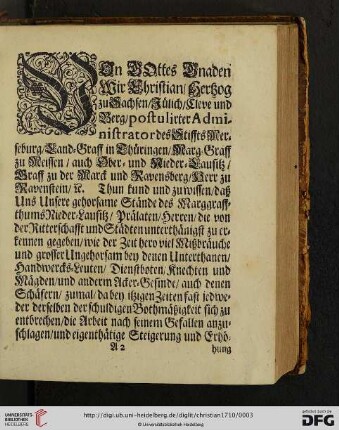 VOn GOttes Gnaden
Wir Christian/ Hertzog
zu Sachsen/ Jülich/ Cleve und
Berg/ postulirter Admi-
nistrator des Stiffts Mer-
seburg/ Land-Graff in Thüringen/ Marg-Graff
zu Meissen/ auch Ober- und Nieder-Lausitz/
Graff zu der Marck und Ravensberg/ Herr zu
Ravenstein/ &c. Thun kund und zu wissen/ daß
Uns Unsere gehorsame Stände des Marggraff-
thums Nieder-Lausitz/ Prälaten/ Herren/ die von
der Ritterschafft und Städten unterthänigst zu er-
kennen gegeben/ wie der Zeit hero viel Mißbräuche
und grosser Ungehorsam bey denen Unterthanen/
Handwercks-Leuten/ Dienstboten/ Knechten und
Mägden/ und anderm Acker-Gesinde/ auch denen
Schäfern/ zumal/ da bey itzigen Zeiten fast jedwe-
der derselben der schuldigen Bothmäßigkeit sich zu
entbrechen/ die Arbeit nach seinem Gefallen anzu-
schlagen/ und eigenthätige Steigerung und Erhö-
A 2 hung
UNIVERSITÄTS-
BIBLIOTHEK
HEIDELBERG
http://digi.ub.uni-heidelberg.de/diglit/christian1710/0003
© Universitätsbibliothek Heidelberg
gefördert durch die
DFG